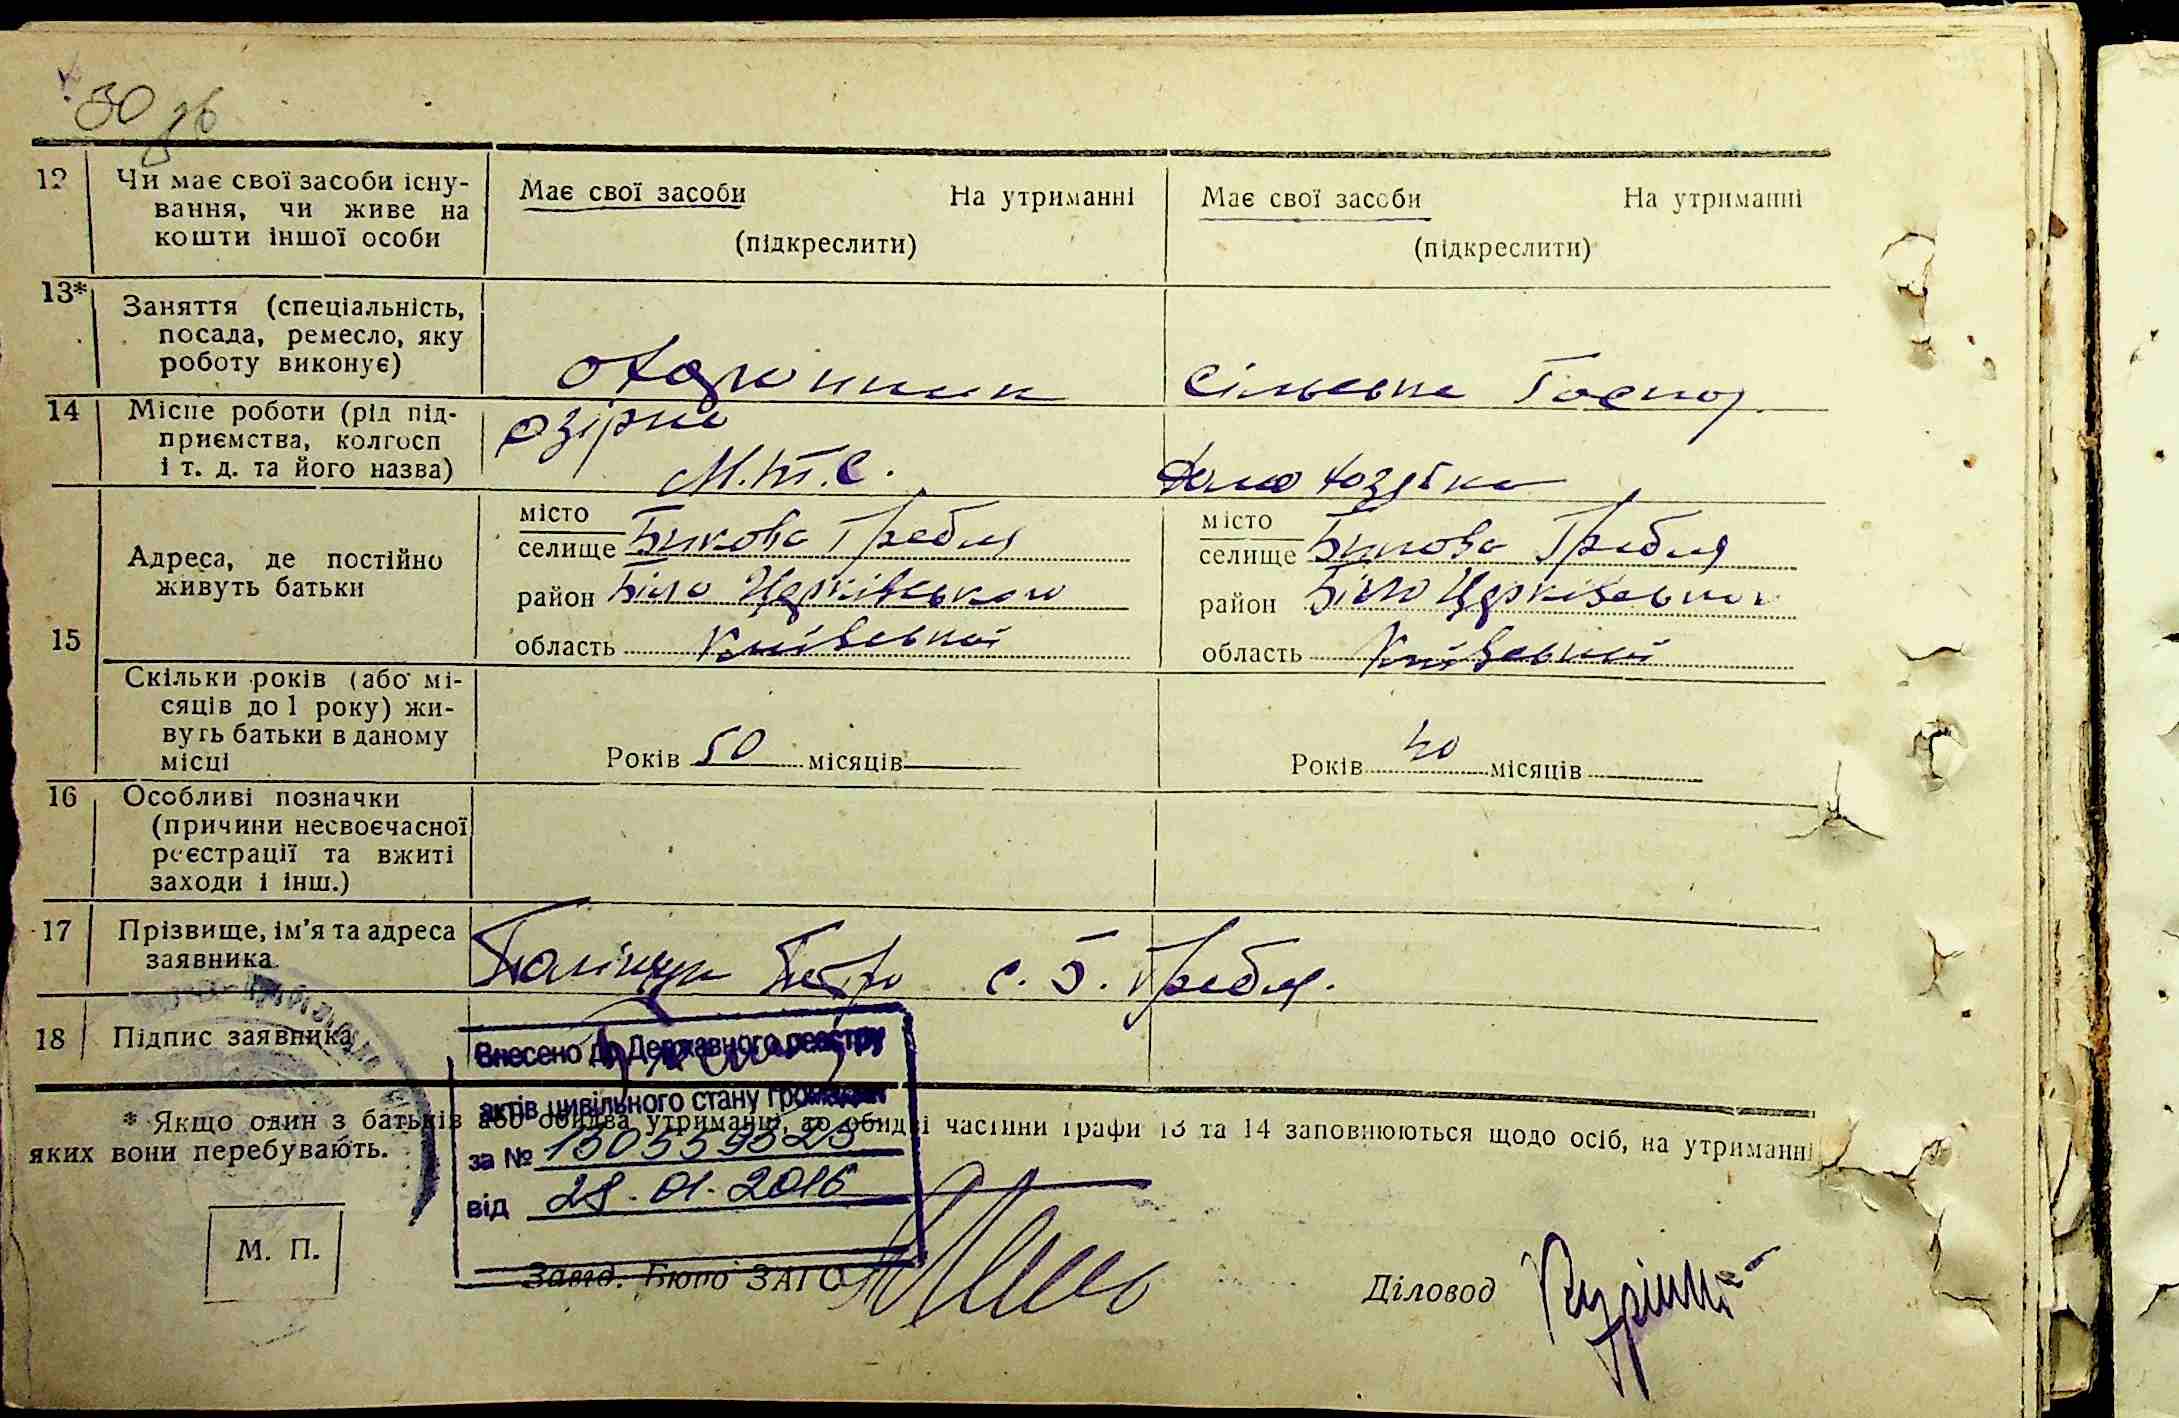 30 зв
12 Чи має свої засоби існу-
вання, чи живе на
кошти іншої особи
Має свої засоби На утриманні
(підкреслити)
Має свої засоби На утриманні
(підкреслити)
13* Заняття (спеціальність,
посада, ремесло, яку
роботу виконує)
Сільське Госпор
14 Місце роботи (рід під-
приємства, колгосп
і т. д. та його назва)
Озірна
М.Т.С.
Домо хозяйка
15
Адреса, де постійно
живуть батьки
місто
селище Бикова Гребля
район Біло Церківського
область Київської
місто
селище Бикова Гребля
район Біло Церківського
область Київської
Скільки років (або мі-
сяців до 1 року) жи-
вуть батьки в даному
місці
Років 50 місяців
Років 40 місяців
16 Особливі позначки
(причини несвоєчасної
реєстрації та вжиті
заходи і інш.)
17 Прізвище, ім'я та адреса
заявника
Поліщук Петро с. Б. Гребля.
18 Підпис заявника
Внесено до Державного реєстру
актів цивільного стану громадян
за №
від 28.01.2016
* Якщо один з батьків або обидва утриманці, то обидві частини графи 13 та 14 заповнюються щодо осіб, на утриманні
яких вони перебувають.
М. П.
Завід. Бюро ЗАГС
Діловод